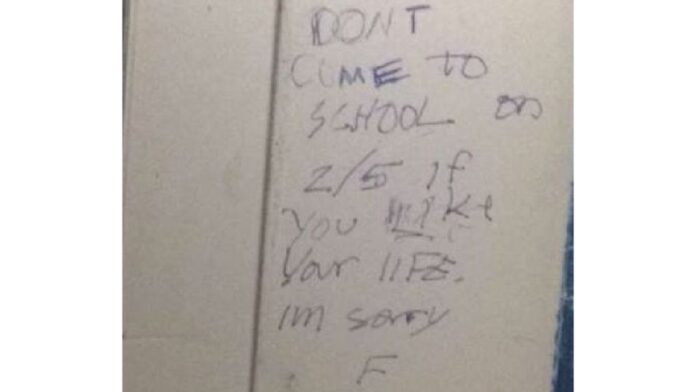 DONT
COME TO
SCHOOL on
2/5 If
You like
Your lIFE.
Im sorry
F